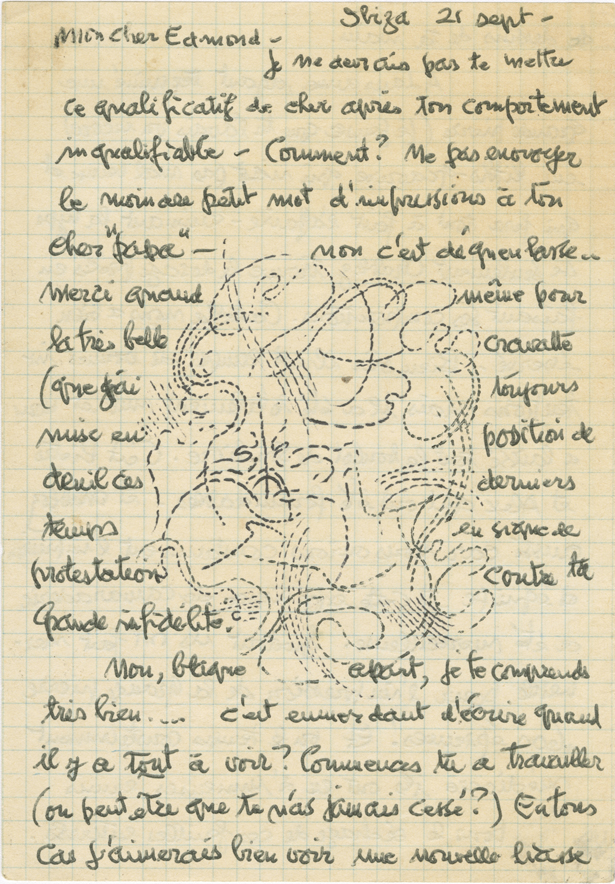 Ibiza 21 sept -
Mon cher Edmond -
Je ne devrais pas te mettre
ce qualificatif de cher après ton comportement
inqualifiable - Comment? Ne pas envoyer
le moindre petit mot d'impressions à ton
cher "papa" - non c'est dégueulasse..
merci quand même pour
la très belle cravatte
(que j'ai toujours
mise en position de
deuil ces derniers
temps en signe de
protestation contre ta
grande infidelite.
Non, blague apart, je te comprends
très bien.... c'est enmerdant d'écrire quand
il y a tout à voir? Commences tu a travailler
(ou peut etre que tu n'as jamais cessé?) En tous
cas j'aimerais bien voir une nouvelle liasse